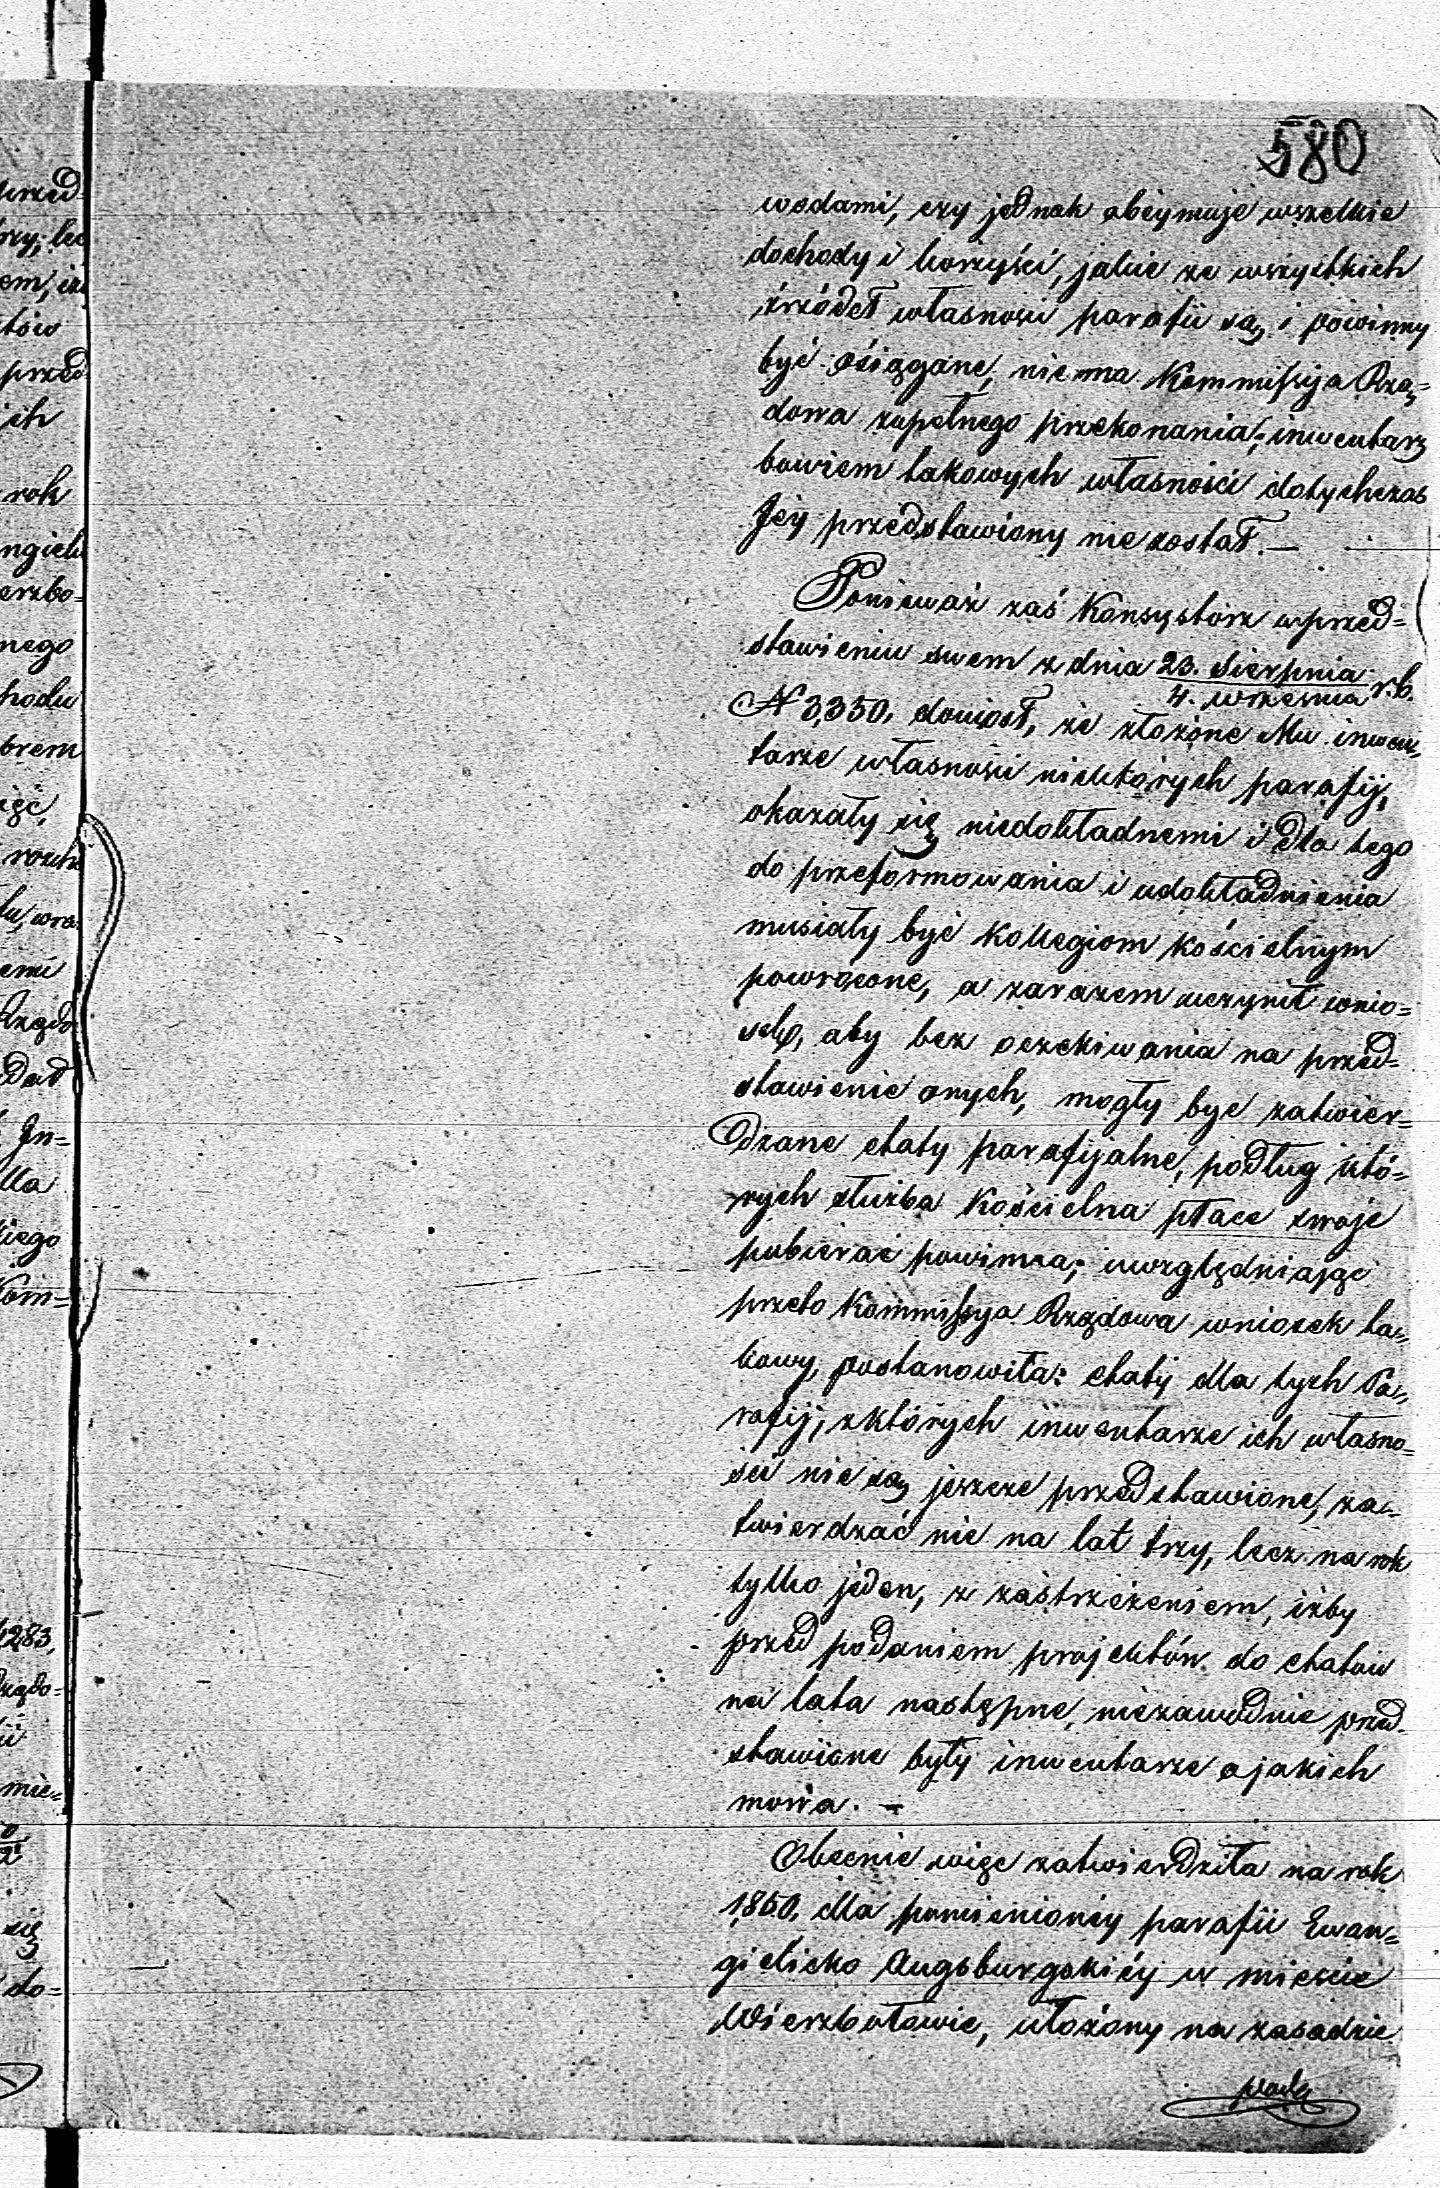 580
wodami, czy jednak obeymuje wszelkie
dochody i korzyści, jakie ze wszystkich
źrzódeł własności parafii są, i powinny
być osiągane, niema Kommissyja Rzą-
dowa zupełnego przekonania; inwentarz
bowiem takowych własności dotychczas
Jéy przedstawiony nie został. —
Ponieważ zaś Konsystorz w przed=
stawieniu swem z dnia 23. Sierpnia r.b.
4. września
N 3,350. doniosł, że złożone Mu inwen,
tarze własności niektórych parafij,
okazały się niedokładnemi i dla tego
do przeformowania i udokładnienia
musiały być Kollegiom Kościelnym
powrócone, a zarazem uczynił wnio=
sek, aby bez oczekiwania na przed-
stawienie onych, mogły być zatwier=
dzane etaty parafijalne, podług któ-
rych służba Kościelna płace swoje
pobierać powinna; uwzględniając
przeto Kommissya Rządowa wniosek ta,
kowy, postanowiła: etaty dla tych Pa,
rafij, z których inwentarze ich własno=
ści nie są jeszcze przedstawione, za-
twierdzać nie na lat trzy, lecz na rok
tylko jeden, z zastrzeżeniem, iżby
przed podaniem projektów do etatów
na lata następne, niezawodnie przed-
stawione były inwentarze o jakich
mowa. —
Obecnie więc zatwierdziła na rok
1850. dla pomienionéy parafii Ewan-
gielicko Augsburgskiéy w mieście
Wierzbołowie, ułożony na zasadzie